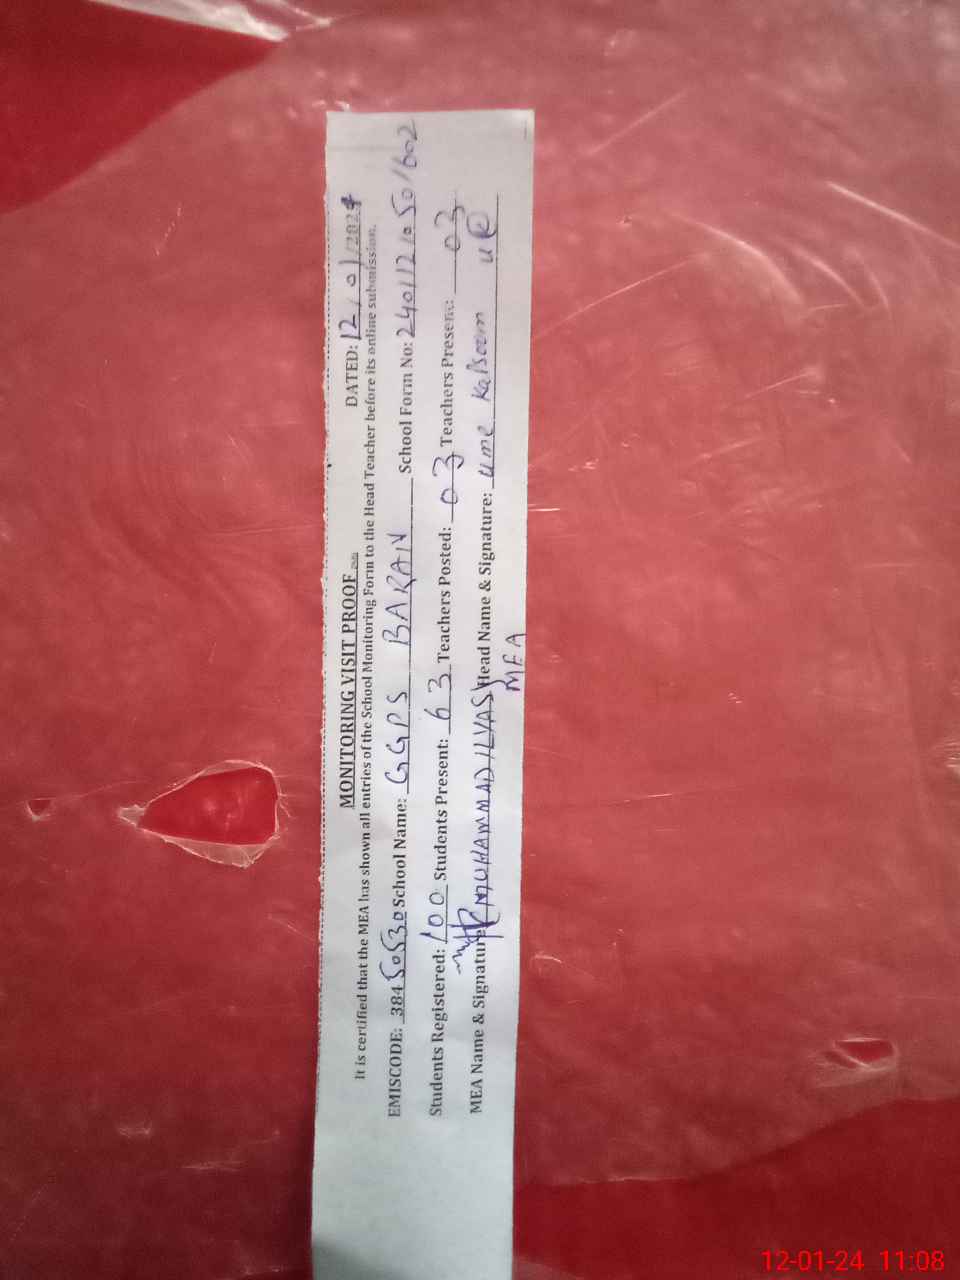 MONITORING VISIT PROOF
DATED: 12/01/2024
It is certified that the MEA has shown all entries of the School Monitoring Form to the Head Teacher before its online submission.
EMISCODE: 38450530 School Name: GGPS BARAN School Form No: 24011210501602
Students Registered: 100 Students Present: 63 Teachers Posted: 03 Teachers Present: 03
MEA Name & Signature: MUHAMMAD ILYAS Head Name & Signature: Ume Kalsoom
MEA
12-01-24 11:08